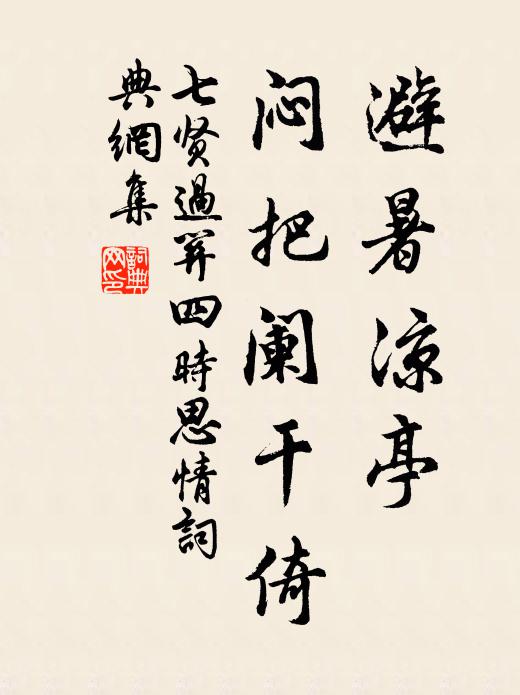 避暑凉亭
闷把阑干倚
七贤過関四時思情詞
典網集
詞典網印